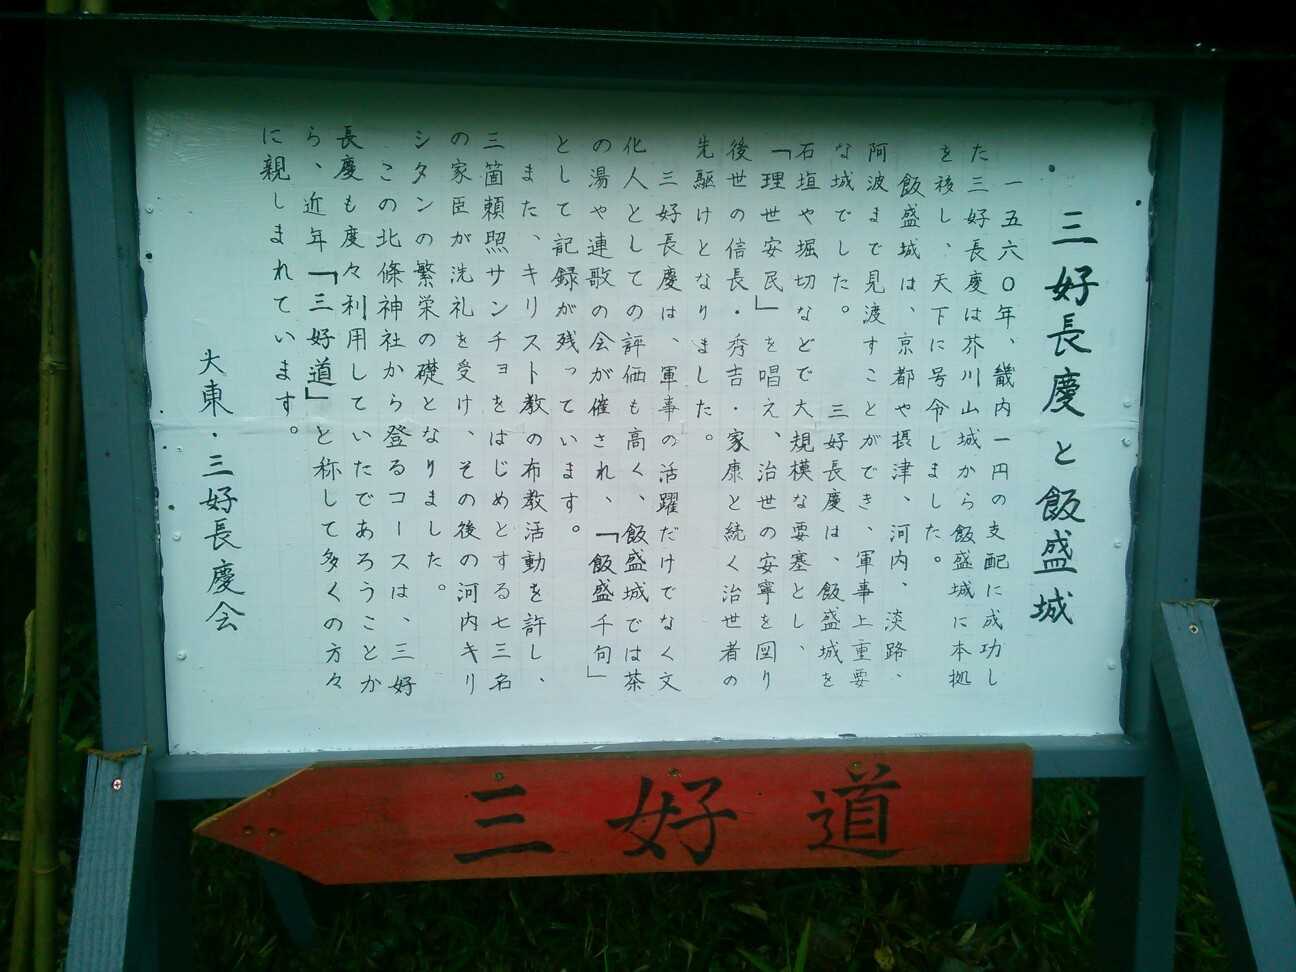 三好長慶と飯盛城
一五六〇年、畿内一円の支配に成功し
た三好長慶は芥川山城から飯盛城に本拠
を移し、天下に号令しました。
飯盛城は、京都や摂津、河内、淡路、
阿波まで見渡すことができ、軍事上重要
な城でした。　三好長慶は、飯盛城を
石垣や堀切などで大規模な要塞とし、
「理世安民」を唱え、治世の安寧を図り
後世の信長・秀吉・家康と続く治世者の
先駆けとなりました。
三好長慶は、軍事の活躍だけでなく文
化人としての評価も高く、飯盛城では茶
の湯や連歌の会が催され、「飯盛千句」
として記録が残っています。
また、キリスト教の布教活動を許し、
三箇頼照サンチョをはじめとする七三名
の家臣が洗礼を受け、その後の河内キリ
シタンの繁栄の礎となりました。
この北條神社から登るコースは、三好
長慶も度々利用していたであろうことか
ら、近年「三好道」と称して多くの方々
に親しまれています。
大東・三好長慶会
三好道